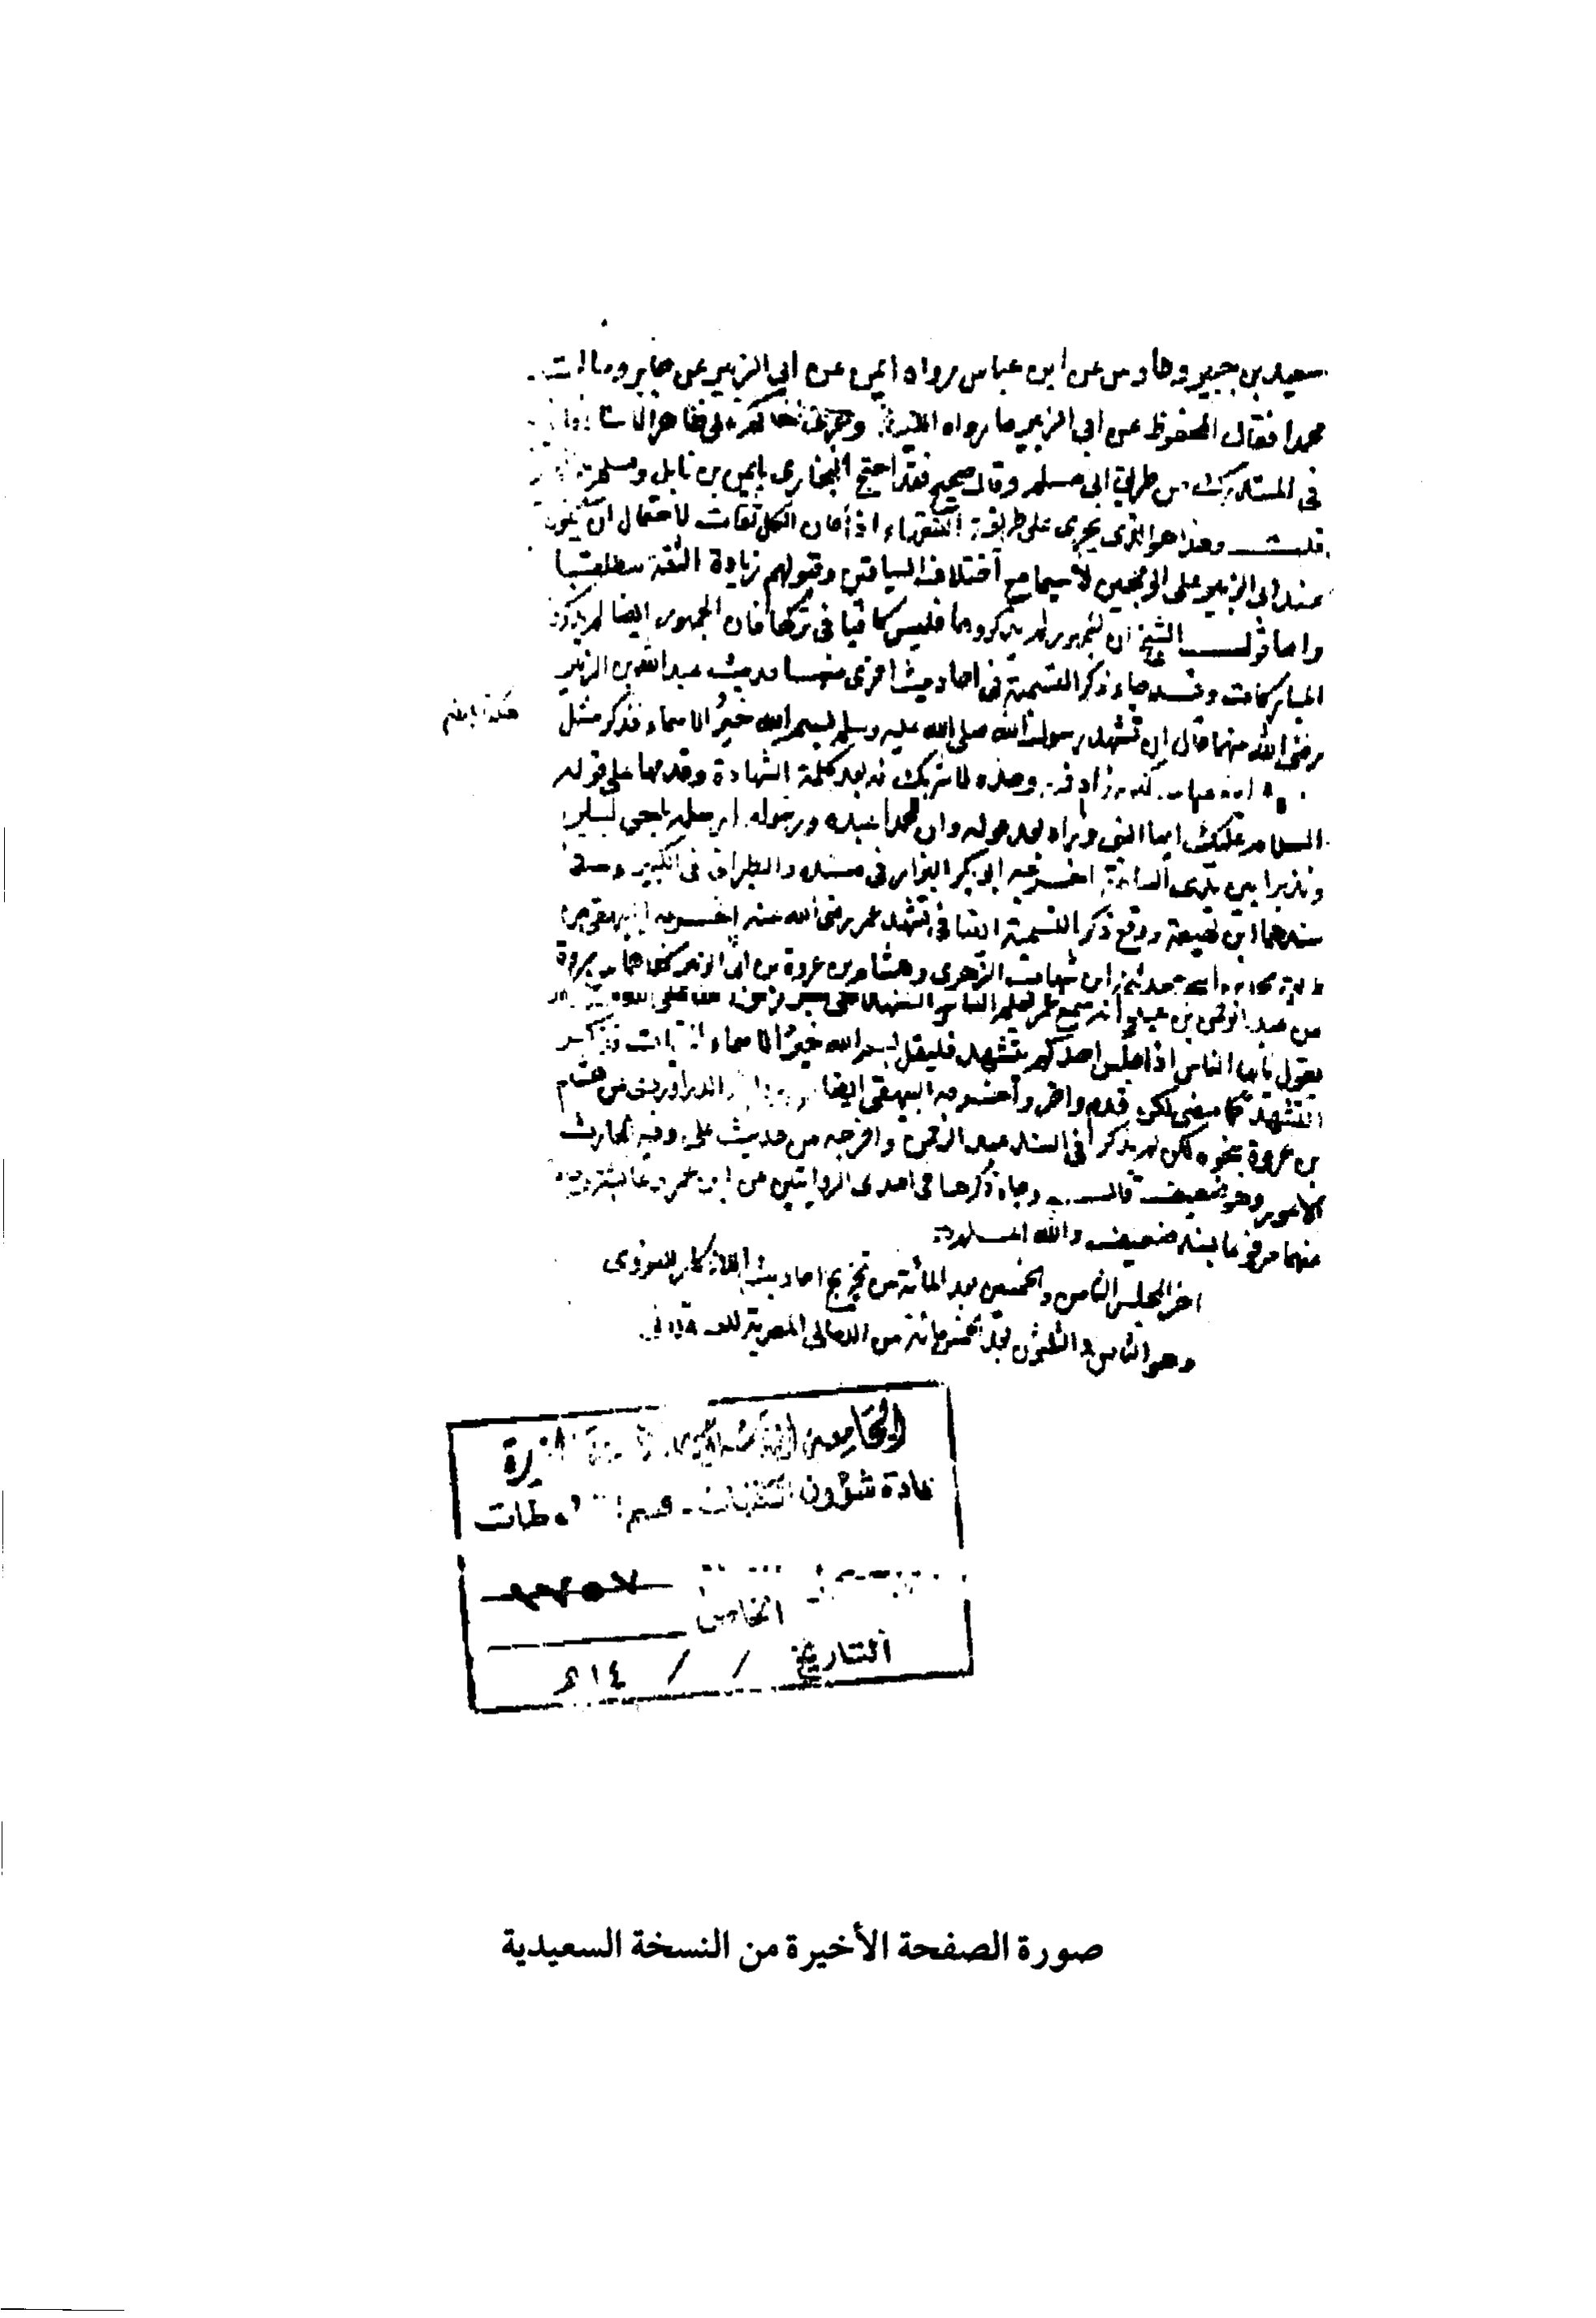 سعيد بن جبير وطاوس عن ابن عباس رواه ايمن عن ابي الزبير عن جابر وسالت
محمدا فقال المحفوظ عن ابي الزبير ما رواه الليث
في المستدرك من طريق ابي مسلم وقال صحيح فقد احتج البخاري بايمن بن نابل ومسلم
قلت وهذا هو الذي يجري على طريقة الفقهاء اذا كان الكل ثقات لاحتمال ان يكون
عند ابي الزبير على الوجهين لا سيما مع اختلاف السياقين وقبولهم زيادة الثقة مطلقا
واما قول الشيخ ان الجمهور لم يذكروها فليس كافيا في تركها فان الجمهور ايضا لم يذكروا
المباركات وقد جاء ذكر التسمية في احاديث اخرى منها حديث عبد الله بن الزبير
رضي الله عنهما قال ان تشهد رسول الله صلى الله عليه وسلم بسم الله خير الاسماء فذكر مثل
ابن عباس لكنه زاد وحده لا شريك له بعد كلمة الشهادة وقدمها على قوله
السلام عليك ايها النبي وزاد بعد قوله وان محمدا عبده ورسوله ارسله بالحق بشيرا
ونذيرا بين يدي الساعة اخرجه ابو بكر البزار في مسنده والطبراني في الكبير وفي
سندهما ابن لهيعة ووقع ذكر التسمية ايضا في تشهد عمر رضي الله عنه اخرجه البيهقي من
ابن شهاب الزهري وهشام بن عروة بن الزبير كلاهما عن عروة
عن عبد الرحمن بن عبد انه سمع عمر يعلم الناس التشهد
يقول يا ايها الناس اذا جلس احدكم يتشهد فليقل بسم الله خير الاسماء التحيات فذكر
التشهد كما مضى لكن قدم واخر واخرجه البيهقي ايضا الدراوردي عن هشام
بن عروة بنحوه لكن لم يذكر في السند عبد الرحمن واخرجه من حديث علي وفيه الحارث
الاعور وهو ضعيف قال وجاء ذكرها في احدى الروايتين عن ابن عمر وعائشة
منهما مرفوعا بسند ضعيف والله اعلم
اخر المجلس الثامن والخمسين بعد المائة من تخريج احاديث الاذكار للنووي
وهو الثامن والثلثون بعد الخمسمائة من الامالي المصرية
عمادة شؤون المكتبات - قسم
الخاص
التاريخ / / ١٤هـ
صورة الصفحة الأخيرة من النسخة السعيدية